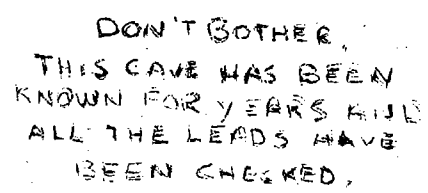 DON'T BOTHER.
THIS CAVE HAS BEEN
KNOWN FOR YEARS
ALL THE LEADS HAVE
BEEN CHECKED.